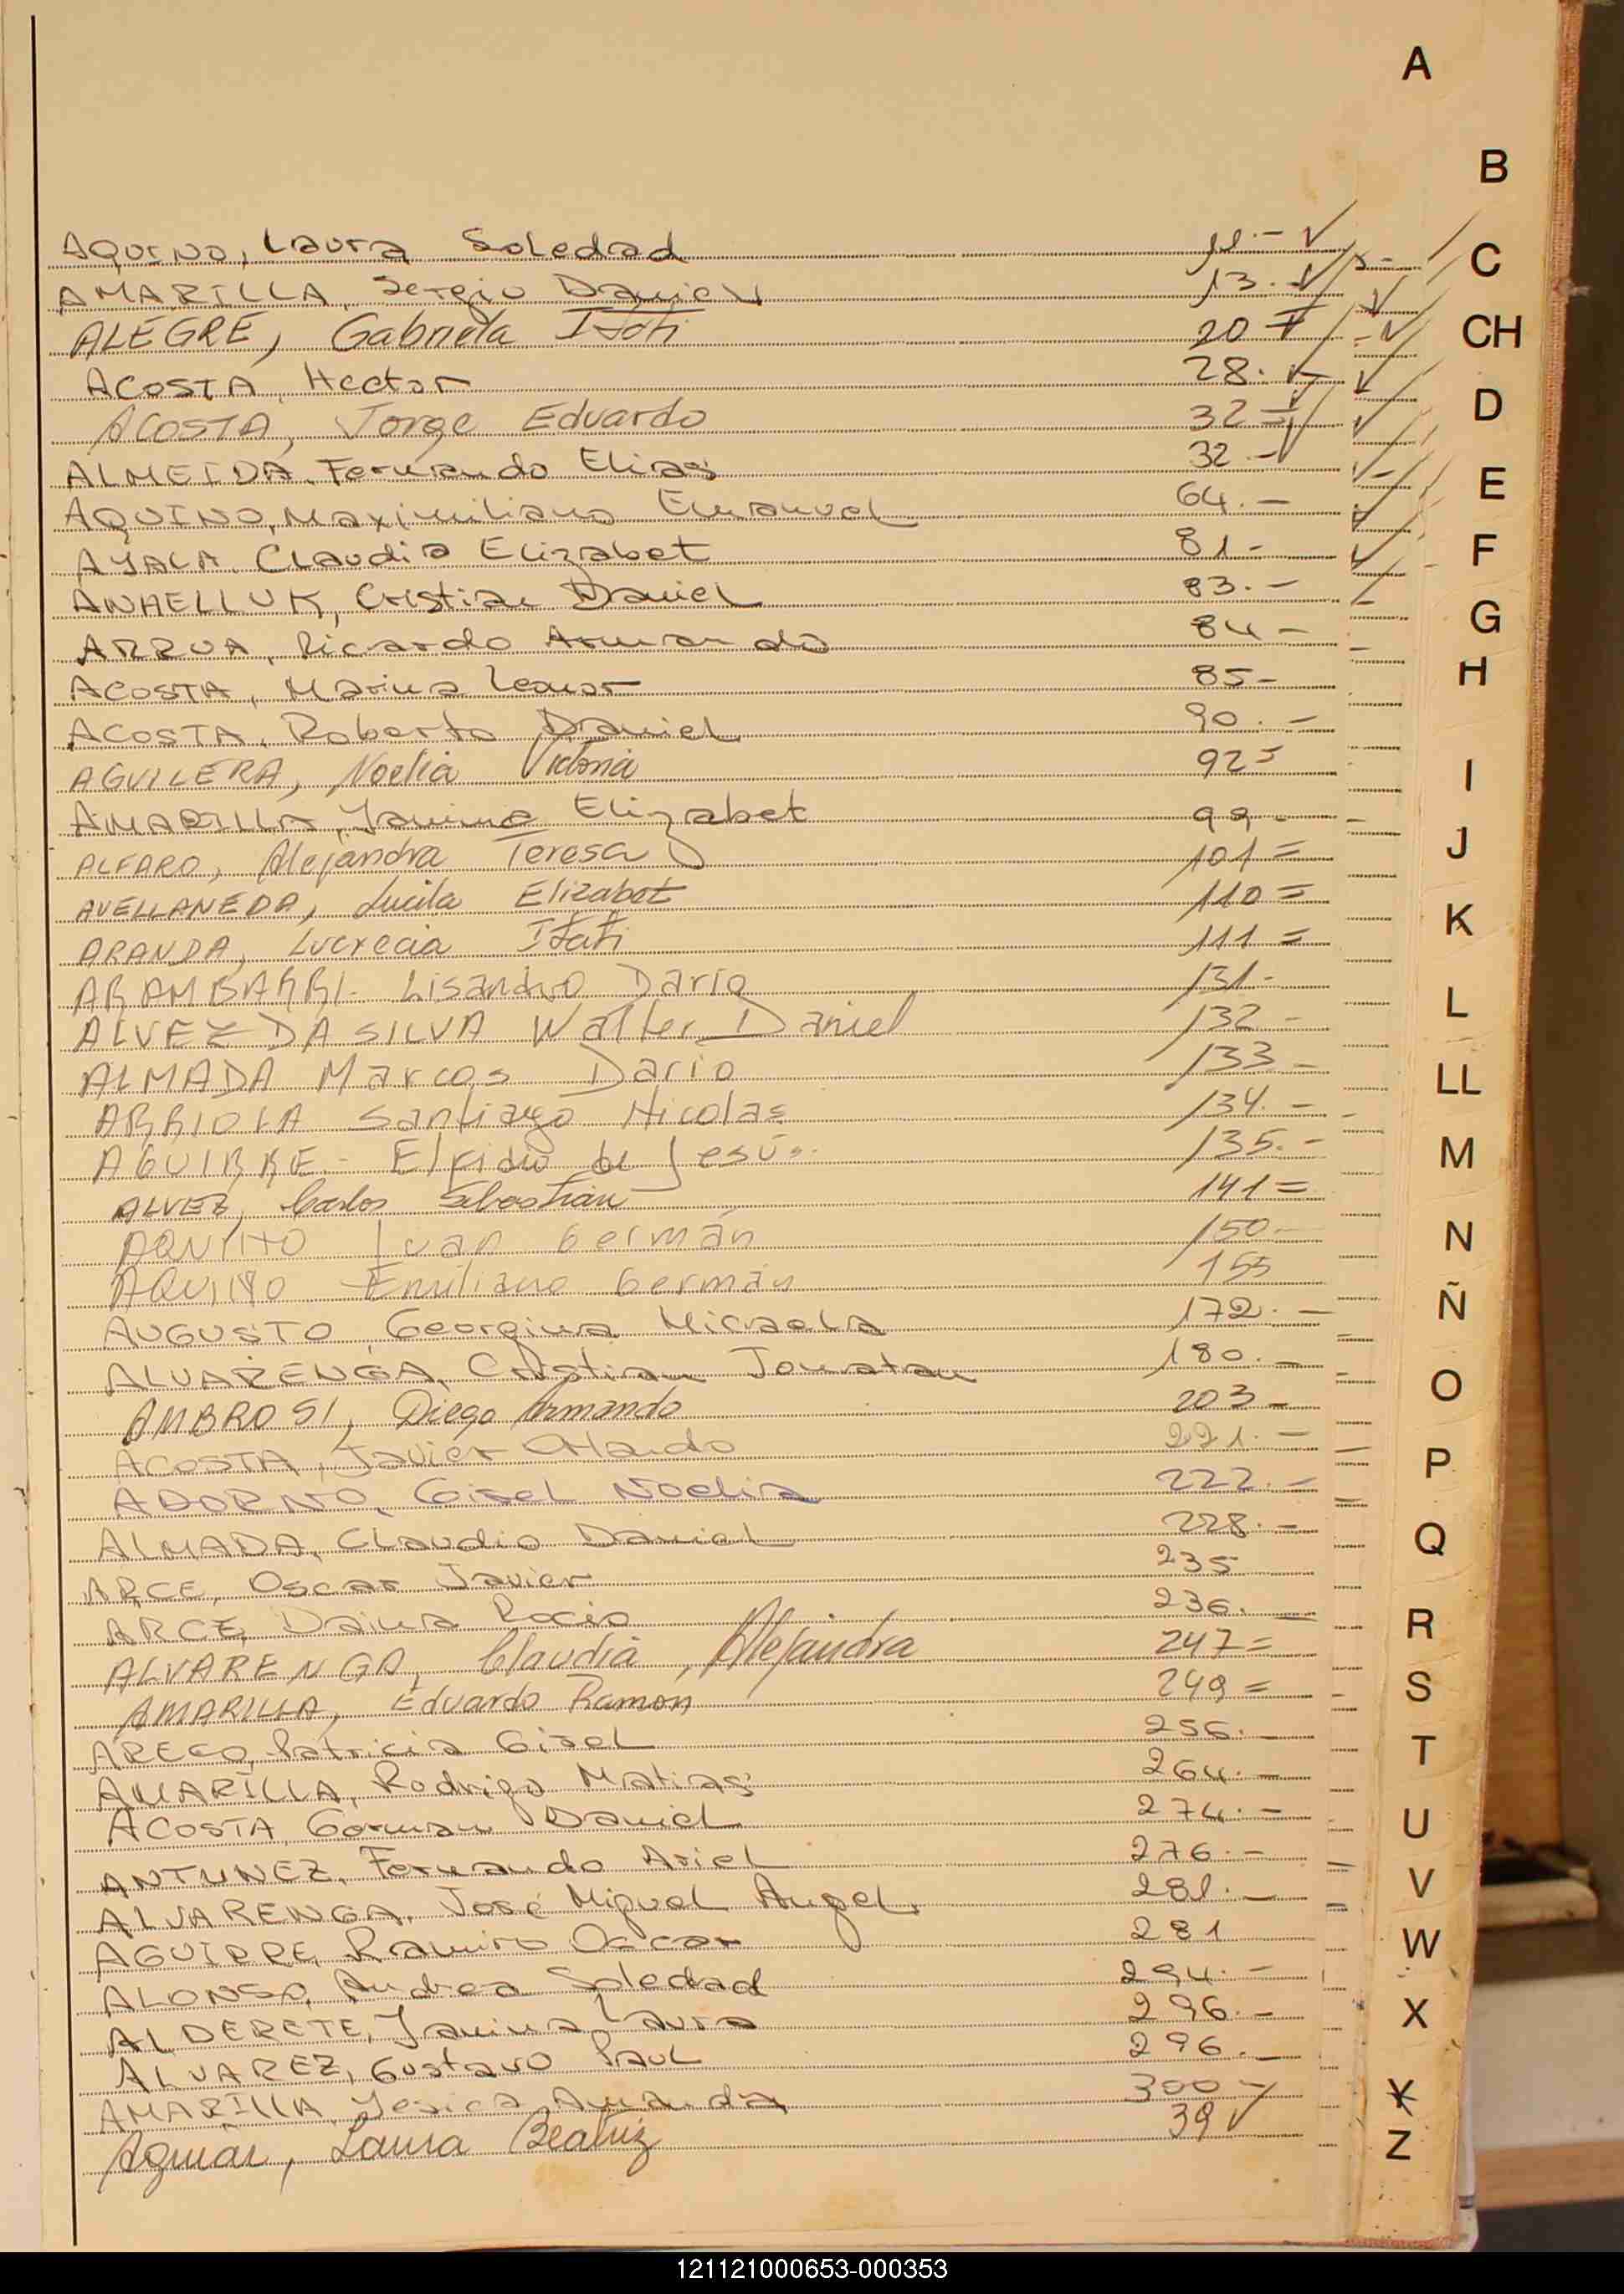 A
B
AQUINO, Laura Soledad 11.-
C
AMARILLA, Sergio Daniel 13.-
ALEGRE, Gabriela Itatí 20 =
CH
ACOSTA, Hector 28.-
D
ACOSTA, Jorge Eduardo 32 =
ALMEIDA, Fernando Elias 32.-
E
AQUINO, Maximiliano Emanuel 64.-
AYALA, Claudia Elizabet 81-
F
ANHELLUK, Cristian Daniel 83.-
G
ARRUA, Ricardo Armando 84-
ACOSTA, Marina Leonor 85-
H
ACOSTA, Roberto Daniel 90.-
AGUILERA, Noelia Victoria 92=
I
AMARILLA, Yanina Elizabet 99-
ALFARO, Alejandra Teresa 101=
J
AVELLANEDA, Lucila Elizabet 110=
ARANDA, Lucrecia Itatí 111=
K
ARAMBARRI- Lisandro Dario 131-
L
ALVEZ DA SILVA Walter Daniel 132-
ALMADA Marcos Dario 133-
LL
ARRIOLA Santiago Nicolas 134.-
AGUIRRE- Elpidio de Jesús. 135.-
M
ALVEZ, Carlos Sebastian 141=
AQUINO Juan Germán 150-
N
AQUINO Emiliano Germán 155
AUGUSTO, Georgina Micaela 172.-
Ñ
ALVARENGA, Cristian Jonatan 180.-
O
AMBROSI, Diego Armando 203-
ACOSTA, Javier Orlando 221.-
P
ADORNO, Gisel Noelia 222.-
ALMADA, Claudio Daniel 228.-
Q
ARCE, Oscar Javier 235
ARCE, Daina Rocio 236.-
R
ALVARENGA, Claudia, Alejandra 247=
AMARILLA, Eduardo Ramon 249=
S
ARECO, Patricia Gisel 256.-
T
AMARILLA, Rodrigo Matias 264.-
ACOSTA, German Daniel 274.-
U
ANTUNEZ, Fernando Ariel 276.-
V
ALVARENGA, José Miguel Angel. 281.-
AGUIRRE, Ramiro Oscar 281
W
ALONSO, Andrea Soledad 294.-
ALDERETE, Yanina Laura 296.-
X
ALVAREZ, Gustavo Paul 296.-
AMARILLA, Yesica Amanda 300-
Y
Aguiar, Laura Beatriz 39
Z
121121000653-000353